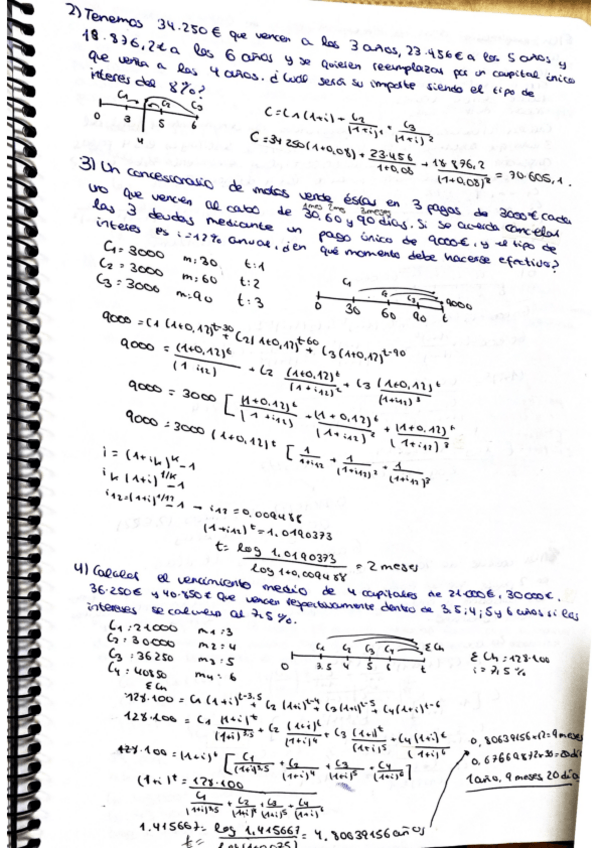 2) Tenemos 34.250 € que vencen a los 3 años, 23.456 € a los 5 años y
18.876,2 € a los 6 años y se quieren reemplazar por un capital único
que venza a los 4 años. ¿Cuál será su importe siendo el tipo de
interés del 8%?
C1 C2 C3
0 3 5 6
4
C = C1(1+i) + C2/(1+i)^1 + C3/(1+i)^2
C = 34250(1+0,08) + 23.456/1+0,08 + 18876,2/(1+0,08)^2 = 70.605,1.
3) Un concesionario de motos vende éstas en 3 pagos de 3000 € cada
uno que vencen al cabo de 30, 60 y 90 días. Si se acuerda cancelar
1mes 2mes 3meses
las 3 deudas mediante un pago único de 9000 €, y el tipo de
interes es i=12% anual, ¿en qué momento debe hacerse efectivo?
C1 = 3000 m:30 t:1
C2 = 3000 m=60 t:2
C3 = 3000 m=90 t:3
C1 C2 C3 9000
0 30 60 90 t
9000 = C1(1+0,12)^t-30 + C2(1+0,12)^t-60 + C3(1+0,12)^t-90
9000 = (1+0,12)^t/(1 i12) + C2 (1+0,12)^t/(1+i12)^2 + C3 (1+0,12)^t/(1+i12)^3
9000 = 3000 [(1+0,12)^t/(1+i12) + (1+0,12)^t/(1+i12)^2 + (1+0,12)^t/(1+i12)^3
9000 = 3000 (1+0,12)^t [1/1+i12 + 1/(1+i12)^2 + 1/(1+i12)^3
i = (1+ik)^k-1
ik (1+i)^1/k-1
i12=(1+i)^1/12-1 → i12 = 0,009488
(1+i12)^t = 1.0190373
t = log 1.0190373/log 1+0,009488 = 2 meses
4) Calcular el vencimiento medio de 4 capitales de 21000 €, 30000 €,
36.250 € y 40.850 € que vencen respectivamente dentro de 3.5; 4; 5 y 6 años si los
intereses se calculan al 7,5%.
C1 = 21000 m1 = 3
C2 = 30000 m2 = 4
C3 = 36250 m3 = 5
C4 = 40850 m4 = 6
C1 C2 C3 C4 ΣCh
0 3.5 4 5 6 t
ΣCh = 128.100
i = 7,5%
ΣCh
128.100 = C1(1+i)^t-3,5 + C2(1+i)^t-4 + C3(1+i)^t-5 + C4(1+i)^t-6
128.100 = C1 (1+i)^t/(1+i)^3,5 + C2 (1+i)^t/(1+i)^4 + C3 (1+i)^t/(1+i)^5 + C4 (1+i)^t/(1+i)^6
128.100 = (1+i)^t [C1/(1+i)^3,5 + C2/(1+i)^4 + C3/(1+i)^5 + C4/(1+i)^6]
(1+i)^t = 128.100/C1/(1+i)^3,5 + C2/(1+i)^4 + C3/(1+i)^5 + C4/(1+i)^6
0,80639156x12=9 meses
0,67669872x30=20 día
1año, 9 meses 20 día
1.415667 = log 1.415667 = 4.80639156 años
t =